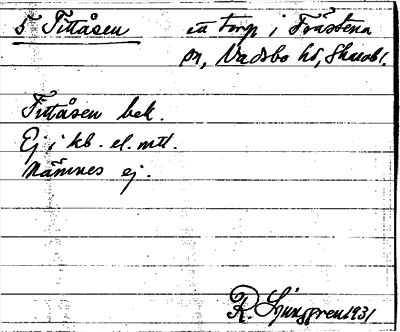 5 Tittåsen ett torp i Fräsbena
sn, Vadsbo hd, Skarab l.
Tittåsen bek.
Ej i kb. el. mtl.
Nämnes ej.
R. Ljunggren 1931